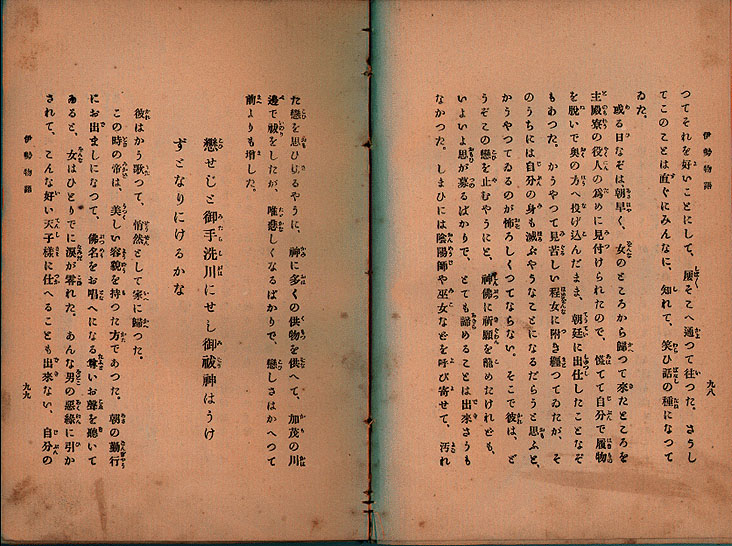 伊勢物語
九八
つてそれを好いことにして、屡そこへ通つて往つた。さうし
てこのことは直ぐにみんなに、知れて、笑ひ話の種になつて
ゐた。
或る日なぞは朝早く、女のところから歸つて來たところを
主殿寮の役人の爲めに見付けられたので、慌てて自分で履物
を脱いで奥の方へ投げ込んだまま、朝廷に出仕したことなぞ
もあつた。かうやつて見苦しい程女に附き纏つてゐたが、そ
のうちには自分の身も滅ぶやうなことになるだらうと思ふと、
かうやつてゐるのが怖ろしくつてならない。そこで彼は、ど
うぞこの戀を止むやうにと、神佛に祈願を籠めたけれども、
いよいよ思が募るばかりで、とても諦めることは出來さうも
なかつた。しまひには陰陽師や巫女などを呼び寄せて、汚れ
た戀を思ひ
るやうに、神に多くの供物を供へて、加茂の川
邊で祓をしたが、唯悲しくなるばかりで、戀しさはかへつて
前よりも増した。
戀せじと御手洗川にせし御祓神はうけ
ずとなりにけるかな
彼はかう歌つて、悄然として家に歸つた。
この時の帝は、美しい容貌を持つた方であつた。朝の勤行
にお出ましになつて、佛名をお唱へになる尊いお聲を聽いて
ゐると、女はひとりでに涙が零れた。あんな男の惡緣に引か
されて、こんな好い天子樣に仕へることも出來ない、自分の
伊勢物語
九九